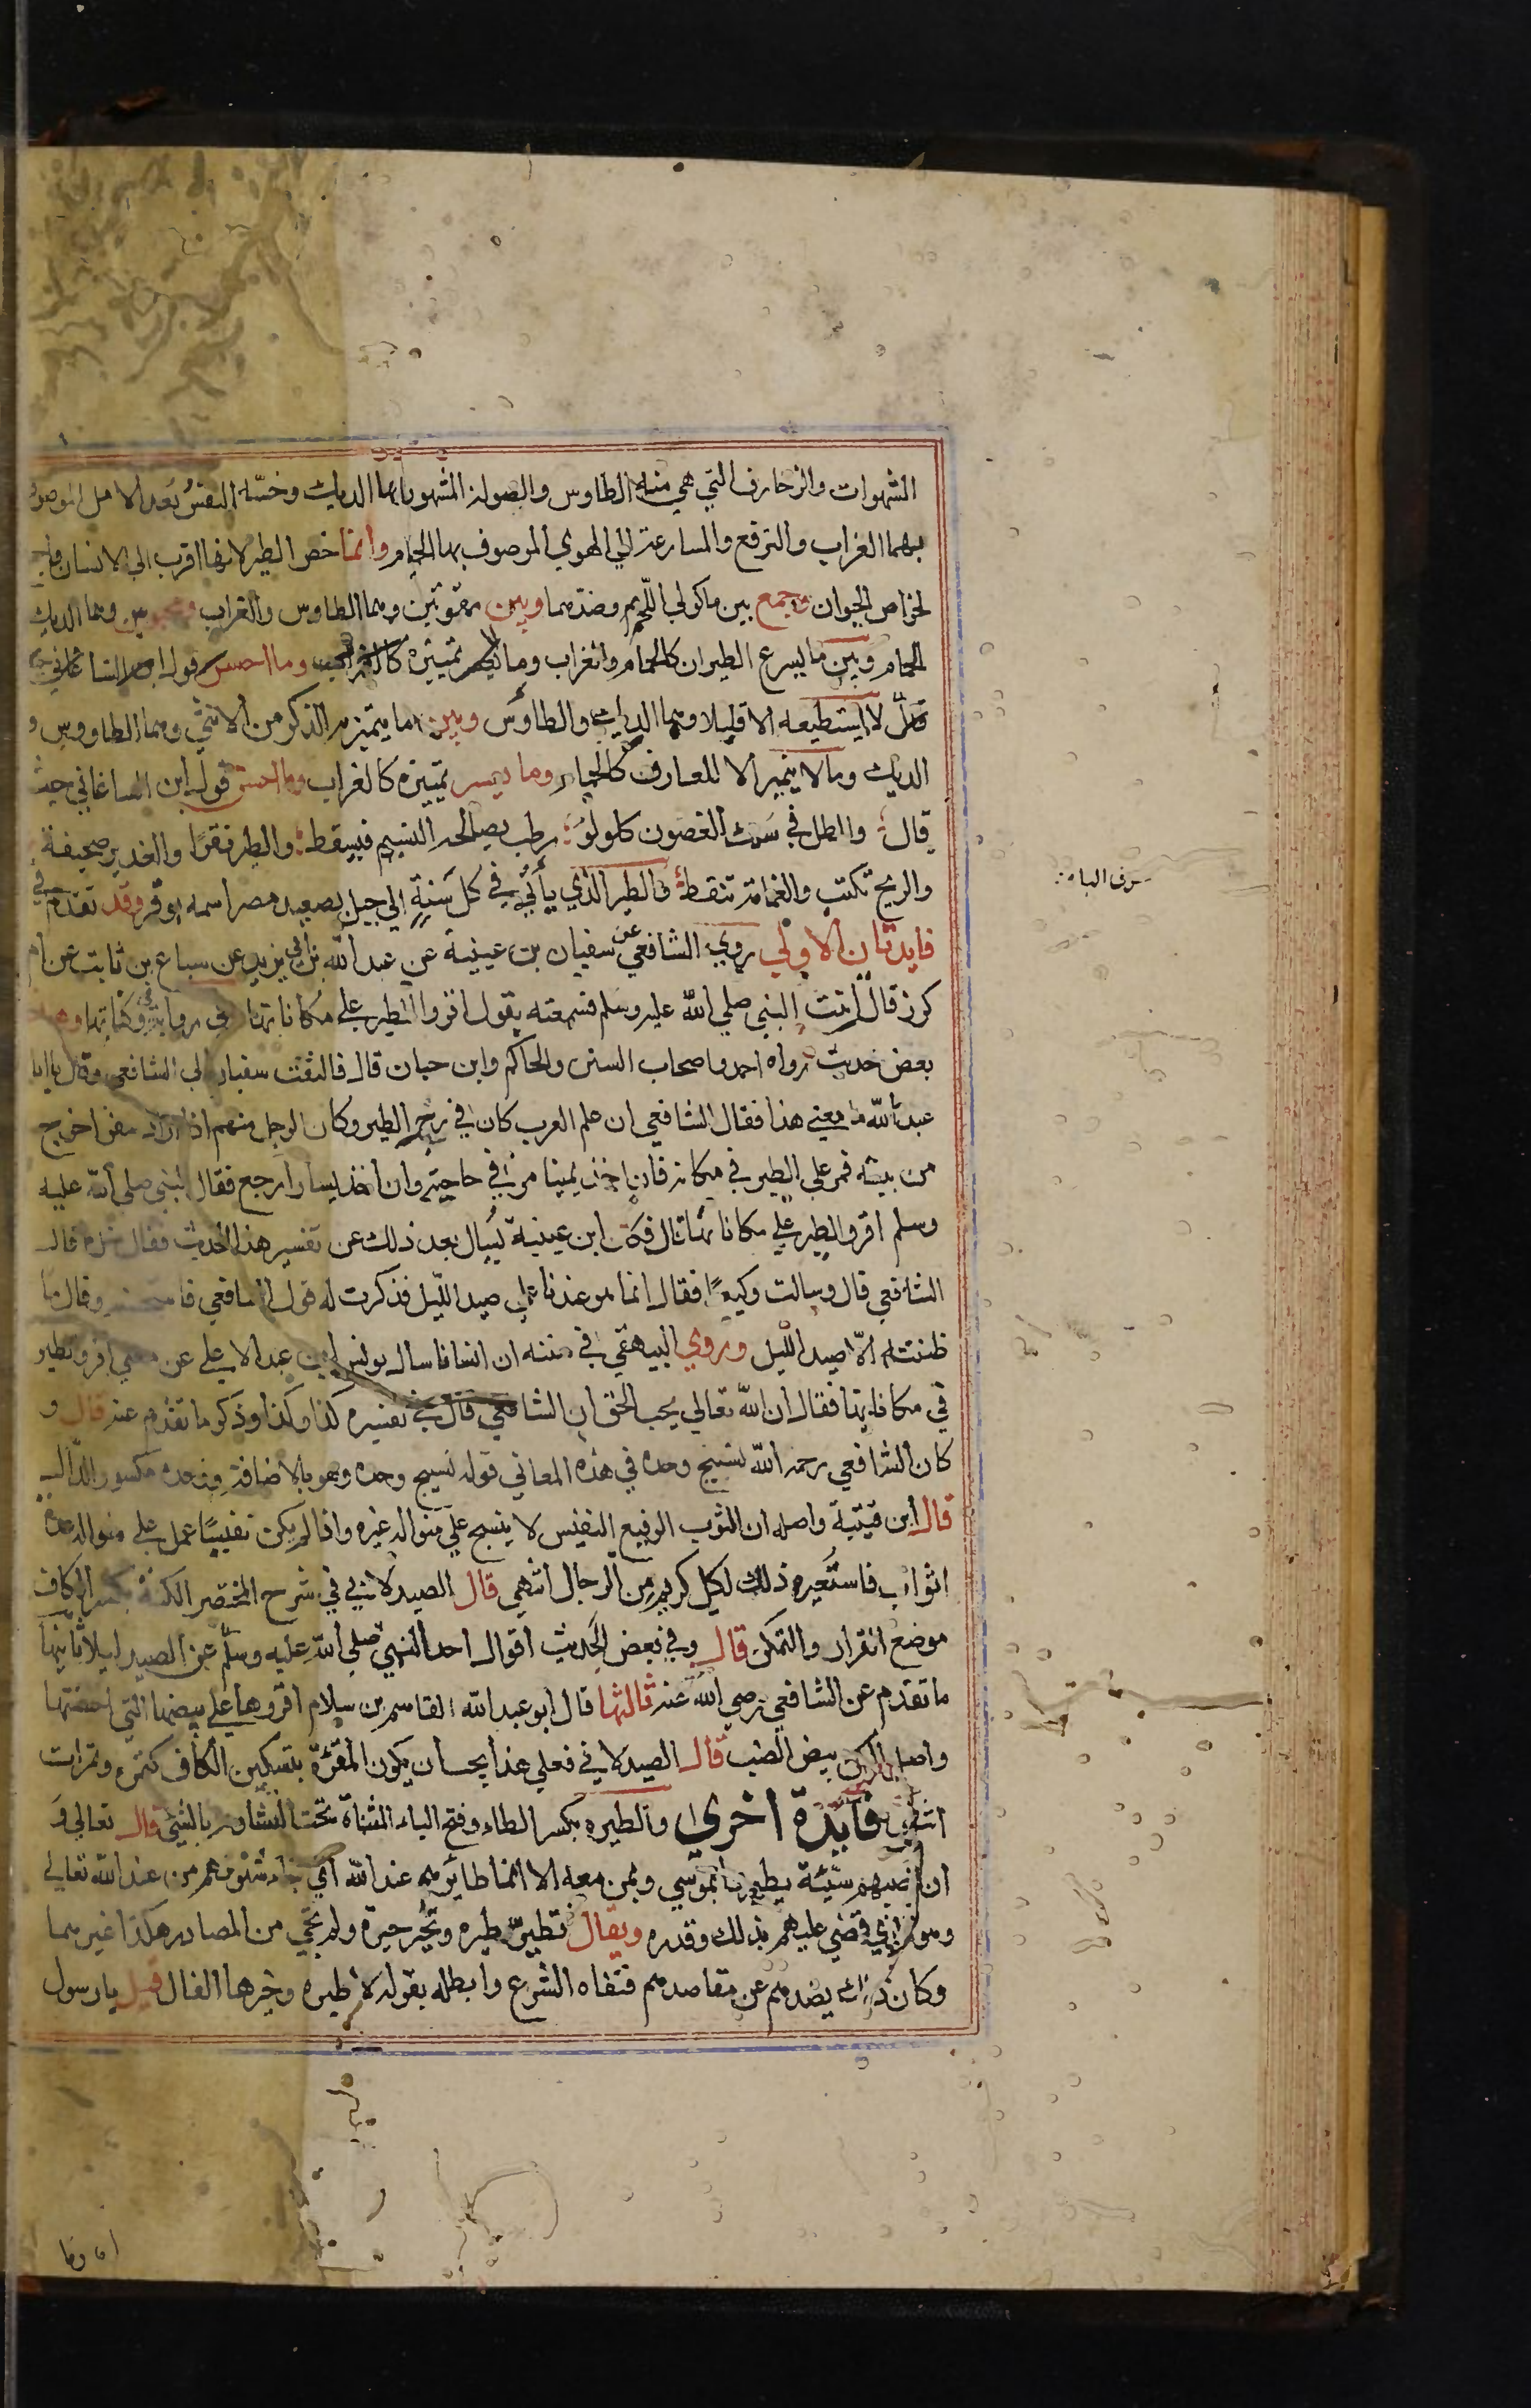 الشهوات والزخارف التي هي منه الطاوس والصولة المشهور بها الديك وخسة النفس بعد الامل الموصوف
بهما الغراب والترفع والمسارعة الي الهوي الموصوف بها الحمام وانما خص الطير لانها اقرب الي الانسان
لخواص الحيوان وجمع بين ماكولي اللحم وضدهما وبين ممقوتين وهما الطاوس والغراب وهما الديك
الحمام وبين ما يسرع الطيران كالحمام والغراب وما تمييزه وما احسن قول
قل لا يستطيعه الا قليلا وهما الديك والطاوس وبين ما يتميز به الذكر من الانثي وهما الطاووس و
الديك وما لا يتميز الا للعارف كالحمام وما يعسر تمييزه كالغراب وما احسن قول ابن الساعاتي حيث
قال والطل في سلك الغصون كلولو رطب يصافحه النسيم فيسقط والطير تقرا والغدير صحيفة
والريح تكتب والغمامة تنقط والطير الذي يأتي في كل سنة الي جبل بصعيد مصر اسمه بوقير وقد تقدم في
فايدتان الاولي روي الشافعي عن سفيان بن عيينة عن عبد الله بن ابي يزيد عن سباع بن ثابت عن ام
كرز قال اتيت النبي صلي الله عليه وسلم فسمعته يقول اقروا الطير علي مكاناتها وفي رواية وكناتها وهذا
بعض حديث رواه احمد واصحاب السنن والحاكم وابن حبان قال فالتفت سفيان الي الشافعي وقال يا ابا
عبد الله ما معني هذا فقال الشافعي ان علم العرب كان في زجر الطير وكان الرجل منهم اذا اراد سفرا خرج
من بيته فمر علي الطير في مكانه فان اخذ يمينا مر في حاجته وان اخذ يسارا رجع فقال النبي صلي الله عليه
وسلم اقروا الطير علي مكاناتها قال فكان ابن عيينة يسال بعد ذلك عن تفسير هذا الحديث فقال قال
الشافعي قال وسالت وكيعا فقال انما هو عندنا علي صيد الليل فذكرت له قول الشافعي وقال ما
ظننته الا صيد الليل وروي البيهقي في سننه ان انسانا سال يونس بن عبد الاعلي عن معني اقروا الطير
في مكاناتها فقال ان الله تعالي يحب الحق ان الشافعي قال في تفسيره كذا وكذا وذكر ما تقدم عنه قال و
كان الشافعي رحمه الله نسيج وحده في هذه المعاني قوله نسيج وحده وهو بالاضافة ووحده مكسور الدال
قال ابن قتيبة واصله ان الثوب الرفيع النفيس لا ينسج علي منواله غيره واذا لم يكن نفيسا عمل علي منواله عدة
اثواب فاستعير ذلك لكل كريم من الرجال انتهي قال الصيدلاني في شرح المختصر المكنة بكسر الكاف
موضع القرار والتمكن قال وفي بعض الحديث اقوال احد النهي صلي الله عليه وسلم عن الصيد ليلا ثانيها
ما تقدم عن الشافعي رضي الله عنه ثالثها قال ابو عبد الله القاسم بن سلام اقروها علي بيضها التي احتضنتها
واصل المكن بيض الضب قال الصيدلاني فعلي هذا يجب ان يكون المفرد بتسكين الكاف كتمرة وتمرات
انتهي فايدة اخري والطيره بكسر الطاء وفتح الياء المثناة تحت التشاوم بالشئ قال تعالي و
ان تصبهم سيئة يطيروا بموسي ومن معه الا انما طايرهم عند الله اي شئومهم من عند الله تعالي
وهو الذي قضي عليهم بذلك وقدره ويقال تطير طيره وتخير خيرة ولم يجئ من المصادر هكذا غيرهما
وكان ذلك يصدهم عن مقاصدهم فنفاه الشرع وابطله بقوله لا طيره وخيرها الفال قيل يا رسول